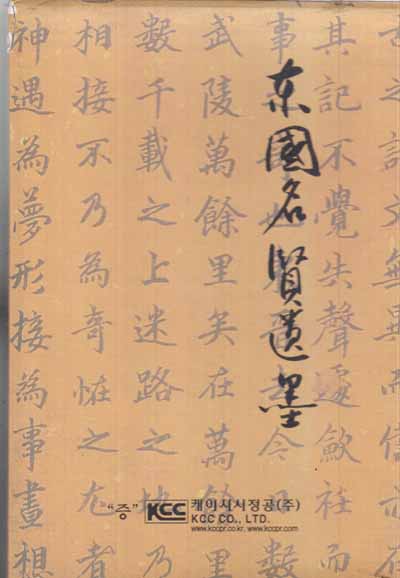 东國名賢遺墨
之記文無異而信
其記不覺失聲遽歛衽而
事
今
數
武陵萬餘里矣在萬餘里
數千載之上迷路之地乃
相接不乃為奇恠之尤者
神遇為夢形接為事晝想
"증" KCC 케이씨씨정공(주)
KCC CO., LTD.
www.kccpr.co.kr, www.kccpr.com